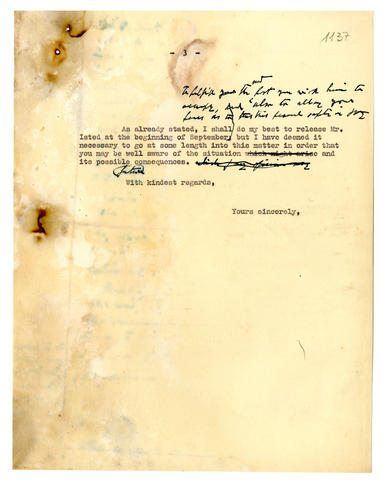 1137
- 3 -
you wish him to
and also to allay your
fears as to
As already stated, I shall do my best to release Mr.
Isted at the beginning of September, but I have deemed it
necessary to go at some length into this matter in order that
you may be well aware of the situation which might arise and
its possible consequences.
With kindest regards,
Yours sincerely,